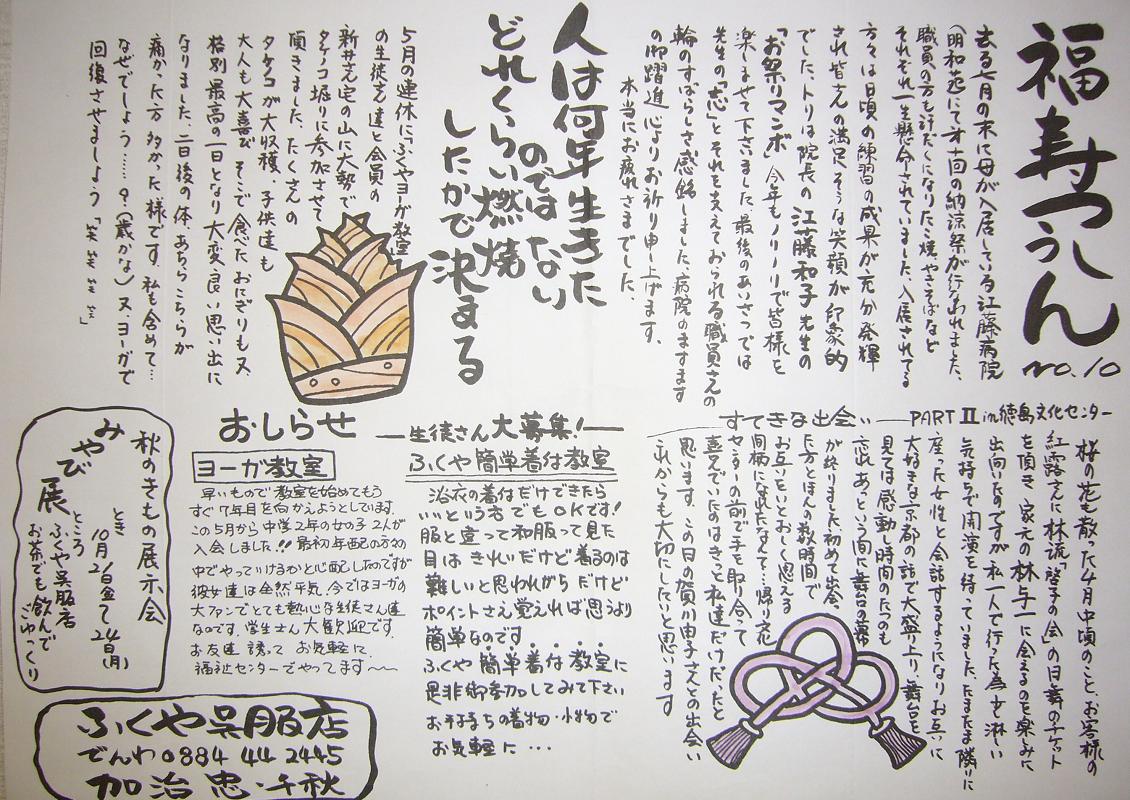 福寿つうしん
no.10
去る七月の末に母が入居している江藤病院
(明和苑)にて才十回の納涼祭が行なわれました。
職員の方も汗だくになりたこ焼、やきそばなど
それぞれ一生懸命されていました。入居されてる
方々は日頃の練習の成果が充分発揮
され皆さんの満足そうな笑顔が印象的
でした。トリは院長の江藤和子先生の
「お祭りマンボ」今年もノリノリで皆様を
楽しませて下さいました。最後のあいさつでは
先生の「志」とそれを支えておられる職員さんの
輪のすばらしさ感銘しました。病院のますます
の御躍進心よりお祈り申し上げます。
本当にお疲れさまでした。
人は何年生きた
のではない
どれくらい燃焼
したかで決まる
5月の連休に「ふくやヨーガ教室」
の生徒さん達と会員の
新井さん宅の山に大勢で
タケノコ堀りに参加させて
頂きました。たくさんの
タケノコが大収穫。子供達も
大人も大喜び そこで食べたおにぎりも又、
格別 最高の一日となり大変良い思い出に
なりました。二日後の体、あちらこちらが
痛かった方多かった様です。私も含めて…
なぜでしょう……?(歳かな)又、ヨーガで
回復させましょう「笑 笑 笑 笑」
すてきな出会い ―PART II in徳島文化センター
桜の花も散った4月中頃のこと、お客様の
紅露さんに林流「啓子の会」の日舞のチケット
を頂き 家元の林与一に会るのを楽しみに
出向いたのですが私一人で行った為少し淋しい
気持ちで開演を待っていました。たまたま隣りに
座った女性と会話するようになりお互いに
大好きな京都の話で大盛り上り、舞台を
見ては感動し時間のたつのも
忘れあっという間に舞台の幕
が終りました。初めて出会っ
た方とほんの数時間で
お互いをいとおしく思える
間柄になれたなんて…帰り文化
センターの前で手を取り合って
喜んでいたのはきっと私達だけだったと
思います。この日の賀川由子さんとの出会い
これからも大切にしたいと思います
―生徒さん大募集!―
ふくや簡単着付教室
浴衣の着付だけできたら
いいという方でもOKです!
服と違って和服って見た
目はきれいだけど着るのは
難しいと思われがちだけど
ポイントさえ覚えれば思うより
簡単なのです。
ふくや簡単着付教室に
是非御参加してみて下さい
お手持ちの着物・小物で
お気軽に…
おしらせ
ヨーガ教室
早いもので教室を始めてもう
すぐ7年目を向かえようとしています。
この5月から中学2年の女の子2人が
入会しました!! 最初年配の方々の
中でやっていけるかと心配したのですが
彼女達は全然平気、今ではヨーガの
大ファンでとても熱心な生徒さん達
なのです。学生さん大歓迎です。
お友達 誘って お気軽に
福祉センターでやってます〜〜
秋のきもの展示会
みやび展
とき
10月21日金て24日(月)
ところ
ふくや呉服店
お茶でも飲んで
ごゆっくり
ふくや呉服店
でんわ0884 44 2445
加治 忠・千秋